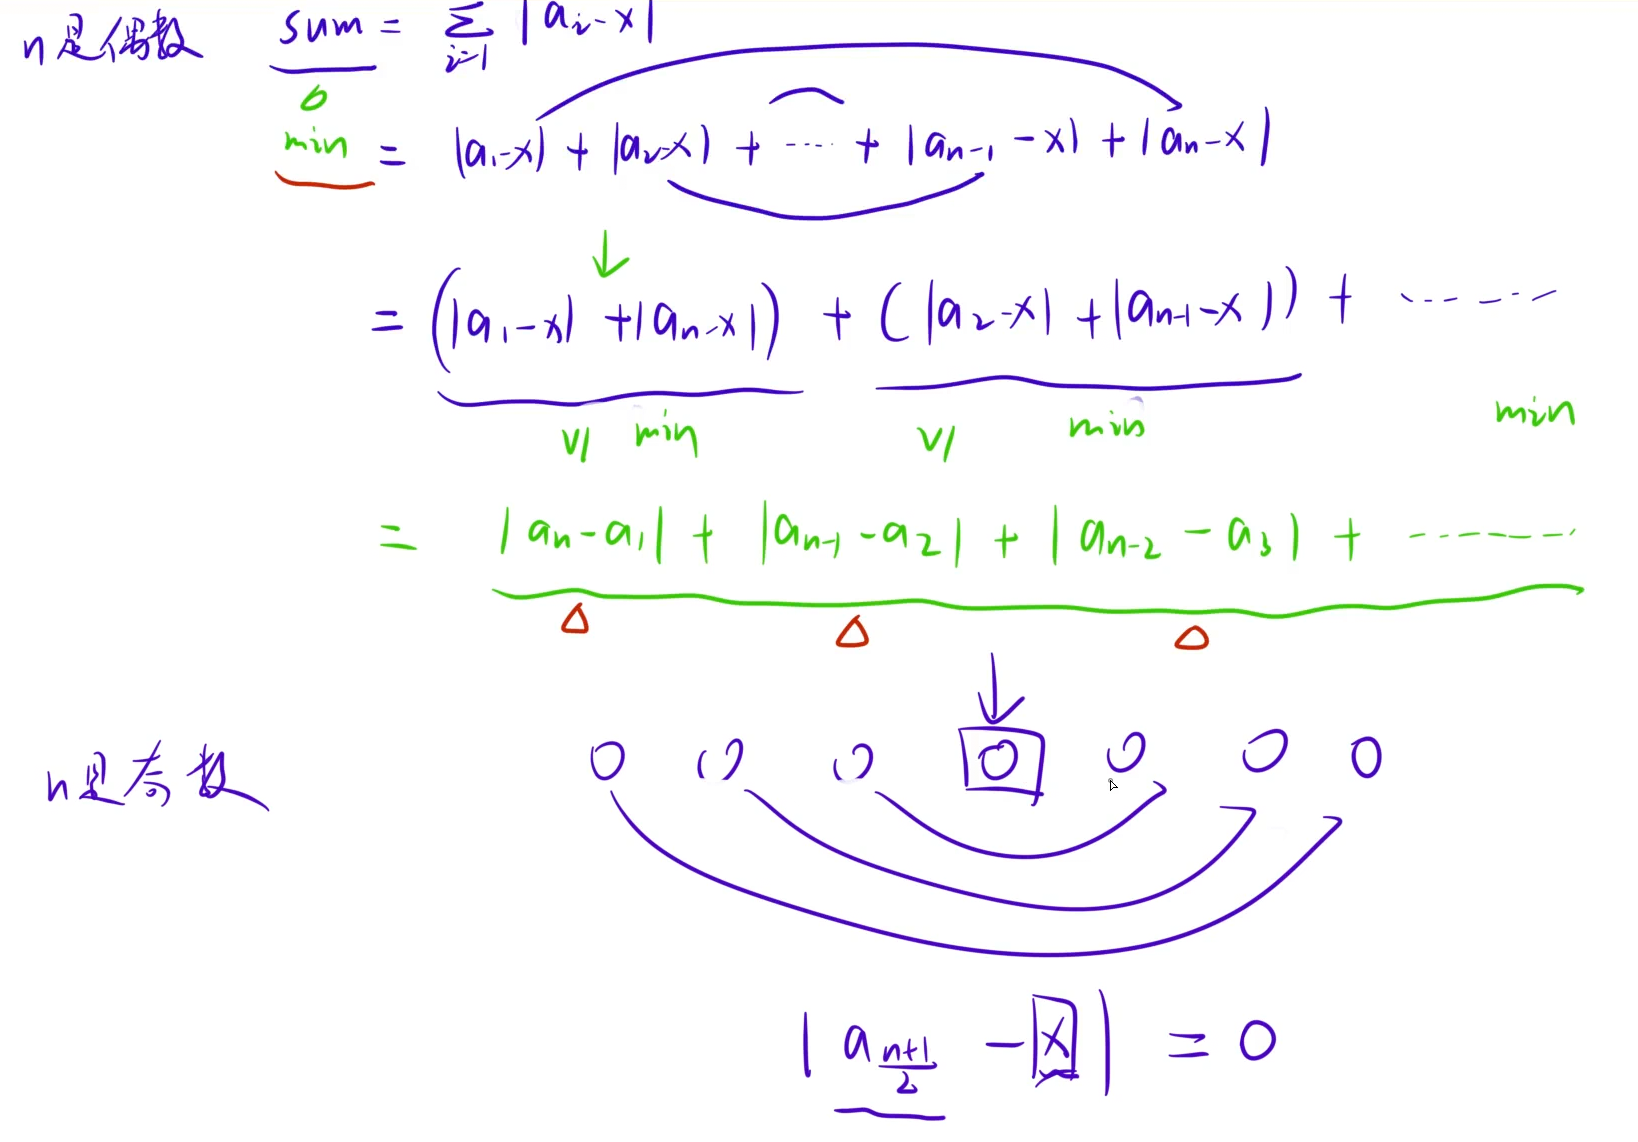 n是偶数 sum = Σ_{i=1} |a_i - x|
min = |a_1 - x| + |a_2 - x| + ····· + |a_{n-1} - x| + |a_n - x|
= (|a_1 - x| + |a_n - x|) + (|a_2 - x| + |a_{n-1} - x|) + ······
V| min V| min min
= |a_n - a_1| + |a_{n-1} - a_2| + |a_{n-2} - a_3| + ······
n是奇数 0 0 0 0 0 0 0
|a_{\frac{n+1}{2}} - x| = 0